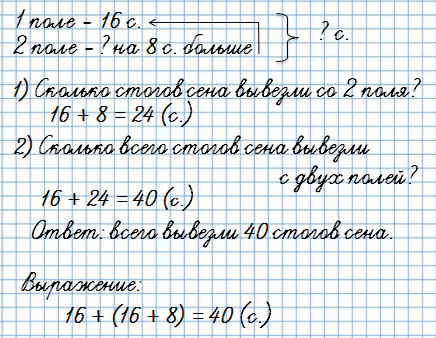 1 поле – 16 с.
2 поле – ? на 8 с. больше
? с.
1) Сколько стогов сена вывезли со 2 поля?
16 + 8 = 24 (с.)
2) Сколько всего стогов сена вывезли
с двух полей?
16 + 24 = 40 (с.)
Ответ: всего вывезли 40 стогов сена.
Выражение:
16 + (16 + 8) = 40 (с.)